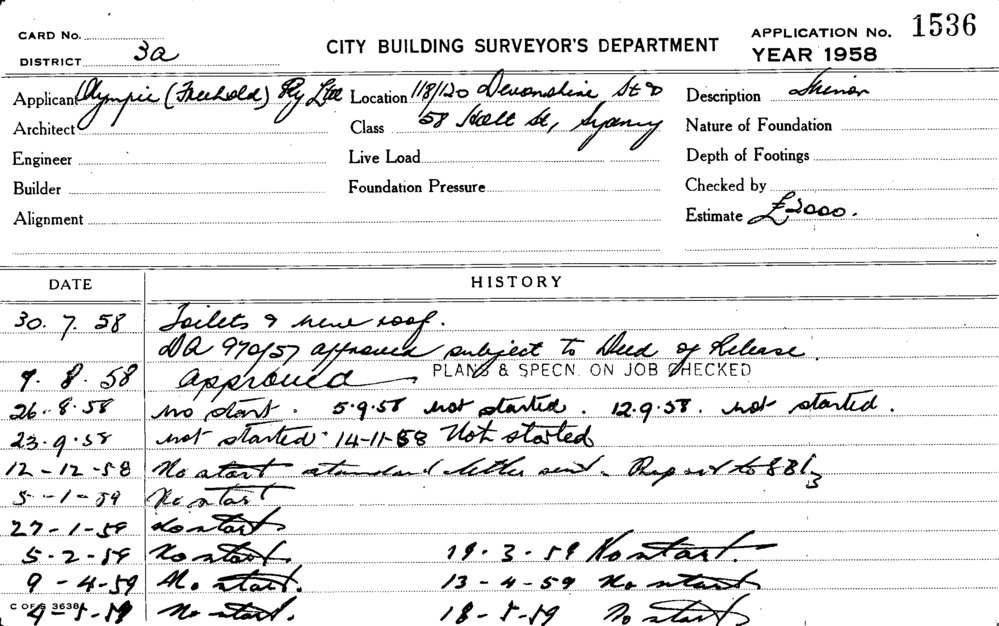 CARD No.
DISTRICT 3a
CITY BUILDING SURVEYOR'S DEPARTMENT
APPLICATION No. 1536
YEAR 1958
Applicant Olympic (Freehold) Pty Ltd Location 118/120 Devonshire St & Description Minor
Architect Class 58 Holt St, Sydney Nature of Foundation
Engineer Live Load Depth of Footings
Builder Foundation Pressure Checked by
Alignment Estimate £2000.
DATE HISTORY
30. 7. 58 Toilets & new roof.
DA 970/57 approved subject to Deed of Release.
9. 8. 58 Approved PLANS & SPECN. ON JOB CHECKED
26. 8. 58 no start. 5.9.58 not started. 12.9.58. not started.
23. 9. 58 not started. 14-11-58 Not started
12-12-58 No start standard letter sent.
5-1-59 No start
27-1-59 No start.
5-2-59 No start. 19.3.59 No start.
9-4-59 No start. 13-4-59 No start
C OF S 3638
4-5-59 No start. 18-5-59 No start